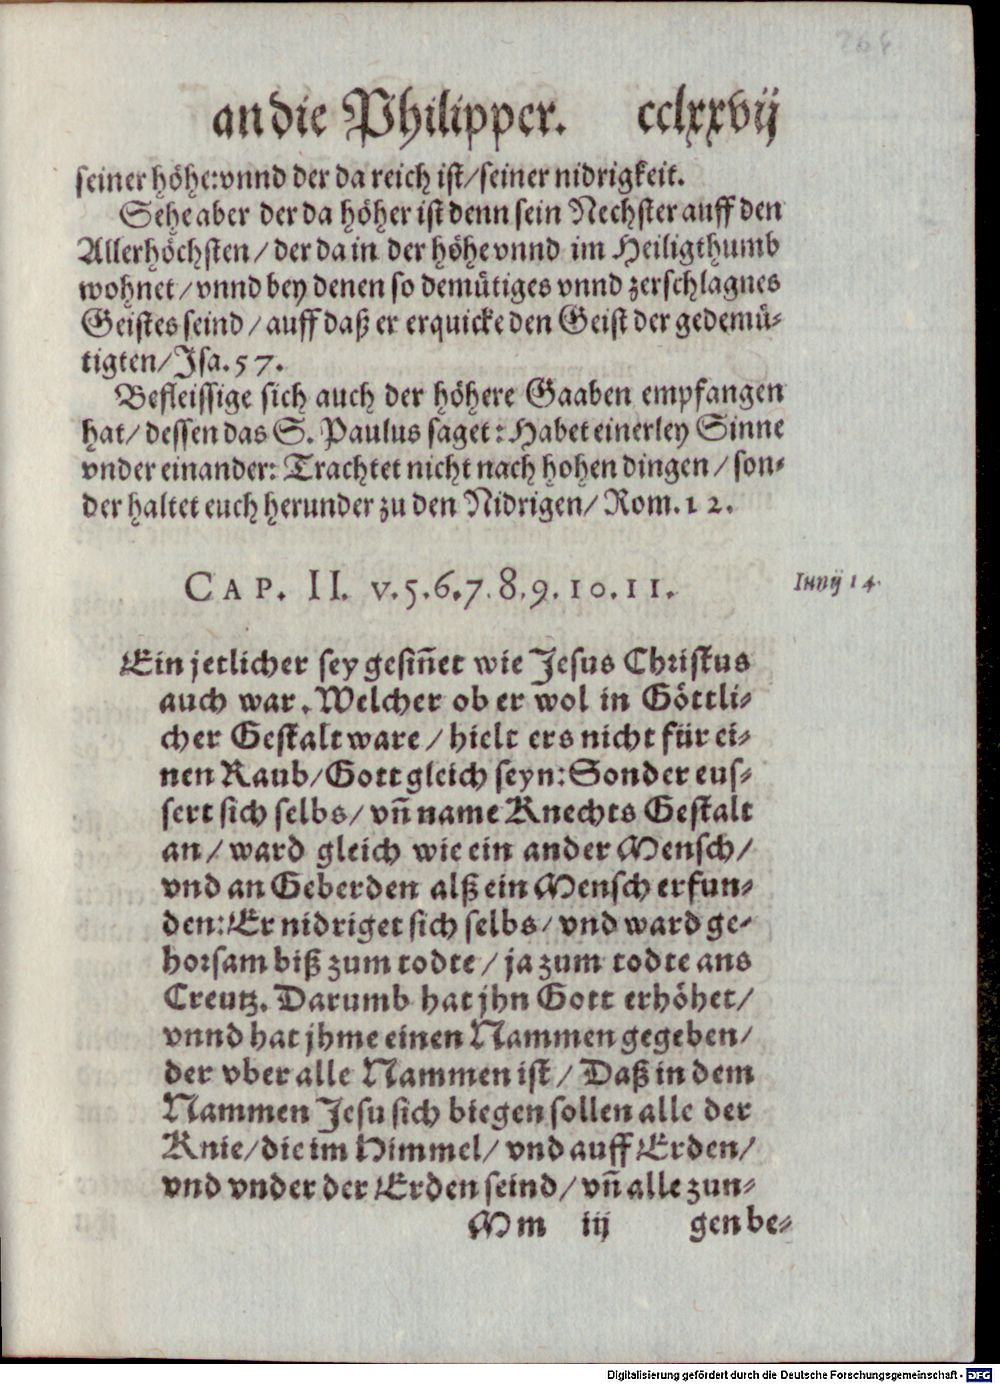 an die Philipper. cclxxvij
seiner höhe: vnnd der da reich ist/ seiner nidrigkeit.
Sehe aber der da höher ist denn sein Nechster auff den
Allerhöchsten/ der da in der höhe vnnd im Heiligthumb
wohnet/ vnnd bey denen so demütiges vnnd zerschlagnes
Geistes seind/ auff daß er erquicke den Geist der gedemü-
tigten/ Isa. 57.
Befleissige sich auch der höhere Gaaben empfangen
hat/ dessen das S. Paulus saget: Habet einerley Sinne
vnder einander: Trachtet nicht nach hohen dingen/ son-
der haltet euch herunder zu den Nidrigen/ Rom. 12.
CAP. II. v. 5. 6. 7. 8. 9. 10. 11.
Iunij 14.
Ein jetlicher sey gesiñet wie Jesus Christus
auch war. Welcher ob er wol in Göttli-
cher Gestalt ware/ hielt ers nicht für ei-
nen Raub/ Gott gleich seyn: Sonder eus-
sert sich selbs/ vñ name Knechts Gestalt
an/ ward gleich wie ein ander Mensch/
vnd an Geberden alß ein Mensch erfun-
den: Er nidriget sich selbs/ vnd ward ge-
horsam biß zum todte/ ja zum todte ans
Creutz. Darumb hat jhn Gott erhöhet/
vnnd hat jhme einen Nammen gegeben/
der vber alle Nammen ist/ Daß in dem
Nammen Jesu sich biegen sollen alle der
Knie/ die im Himmel/ vnd auff Erden/
vnd vnder der Erden seind/ vñ alle zun-
Mm iij gen be-
Digitalisierung gefördert durch die Deutsche Forschungsgemeinschaft - DFG